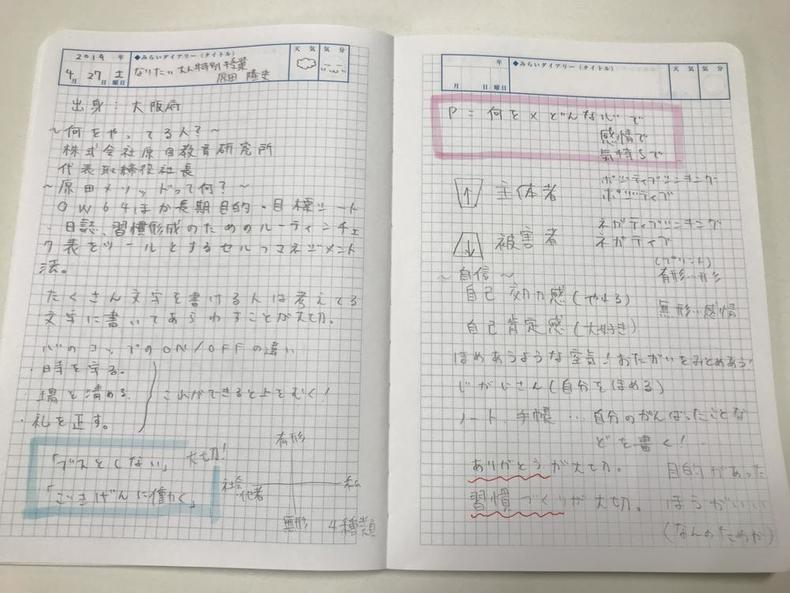 2019 年
4月 27日 土曜日
◆みらいダイアリー(タイトル)
なりたい大人特別授業
原田 隆史
天気 気分
出身:大阪府
~何をやってる人?~
株式会社原田教育研究所
代表取締役社長
~原田メソッドって何?~
OW64ほか長期目的・目標シート
・日誌、習慣形成のためのルーティンチェッ
ク表をツールとするセルフマネジメント
法。
たくさん文字を書ける人は考えてる
文字に書いてあらわすことが大切。
心のコップのON/OFFの違い
・時を守る。
・場を清める。
・礼を正す。
これができると上をむく!
「ブスとしない」
大切!
「ごきげんに働く」
有形
社会 他者
私
無形
4種類
年
月 日 曜日
◆みらいダイアリー(タイトル)
天気 気分
P=何を×どんな心で
感情で
気持ちで
主体者
ポジティブシンキング
ポジティブ
被害者
ネガティブシンキング
ネガティブ
(プリント)
~自信~
有形…形
自己効力感(やれる)
無形…感情
自己肯定感(大好き)
ほめあうような空気!おたがいをみとめあう
じがじさん(自分をほめる)
ノート 手帳 …自分のがんばったことな
どを書く!
ありがとうが大切。
目的があった
習慣づくりが大切。
ほうがいい
(なんのためか)